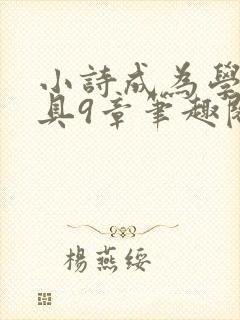 小詩成為學
具9章筆趣閣
楊燕綏